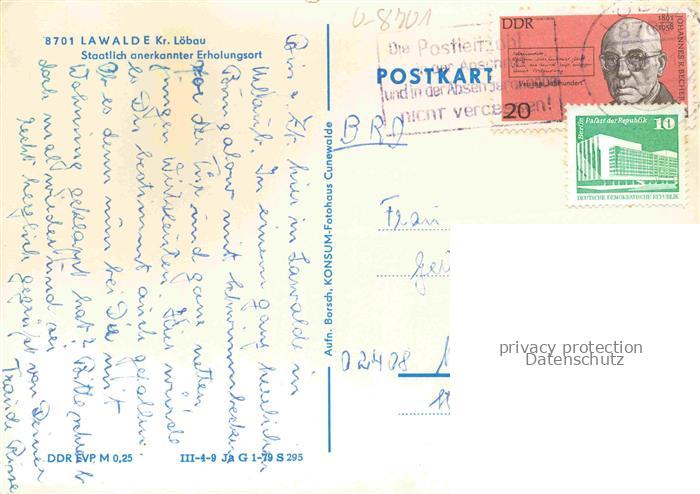 U-8701
8701 LAWALDE Kr. Löbau
Staatlich anerkannter Erholungsort
POSTKART
Die Postleitzahl
in der Anschrift
und in der Absenderangabe
nicht vergessen!
DDR
1891
1958
JOHANNES R. BECHER
20
8701
Berlin, Palast der Republik
10
DEUTSCHE DEMOKRATISCHE REPUBLIK
BRD
Frau
02408
Bin z. Zt. hier in Lawalde im
Urlaub. In einem ganz herrlichen
Bungalow mit Schwimmbecken
vor der Tür und ganz netten
jungen Wirtsleuten. Hier würde
es Dir bestimmt auch gefallen.
Ob es denn nun bei Dir mit
Wohnung geklappt hat? Bitte schreib
doch mal wieder und sei
recht herzlich gegrüßt von Deiner
Traudi
Aufn. Borsch, KONSUM-Fotohaus Cunewalde
DDR EVP M 0,25
III-4-9 Ja G 1-79 S 295
privacy protection
Datenschutz